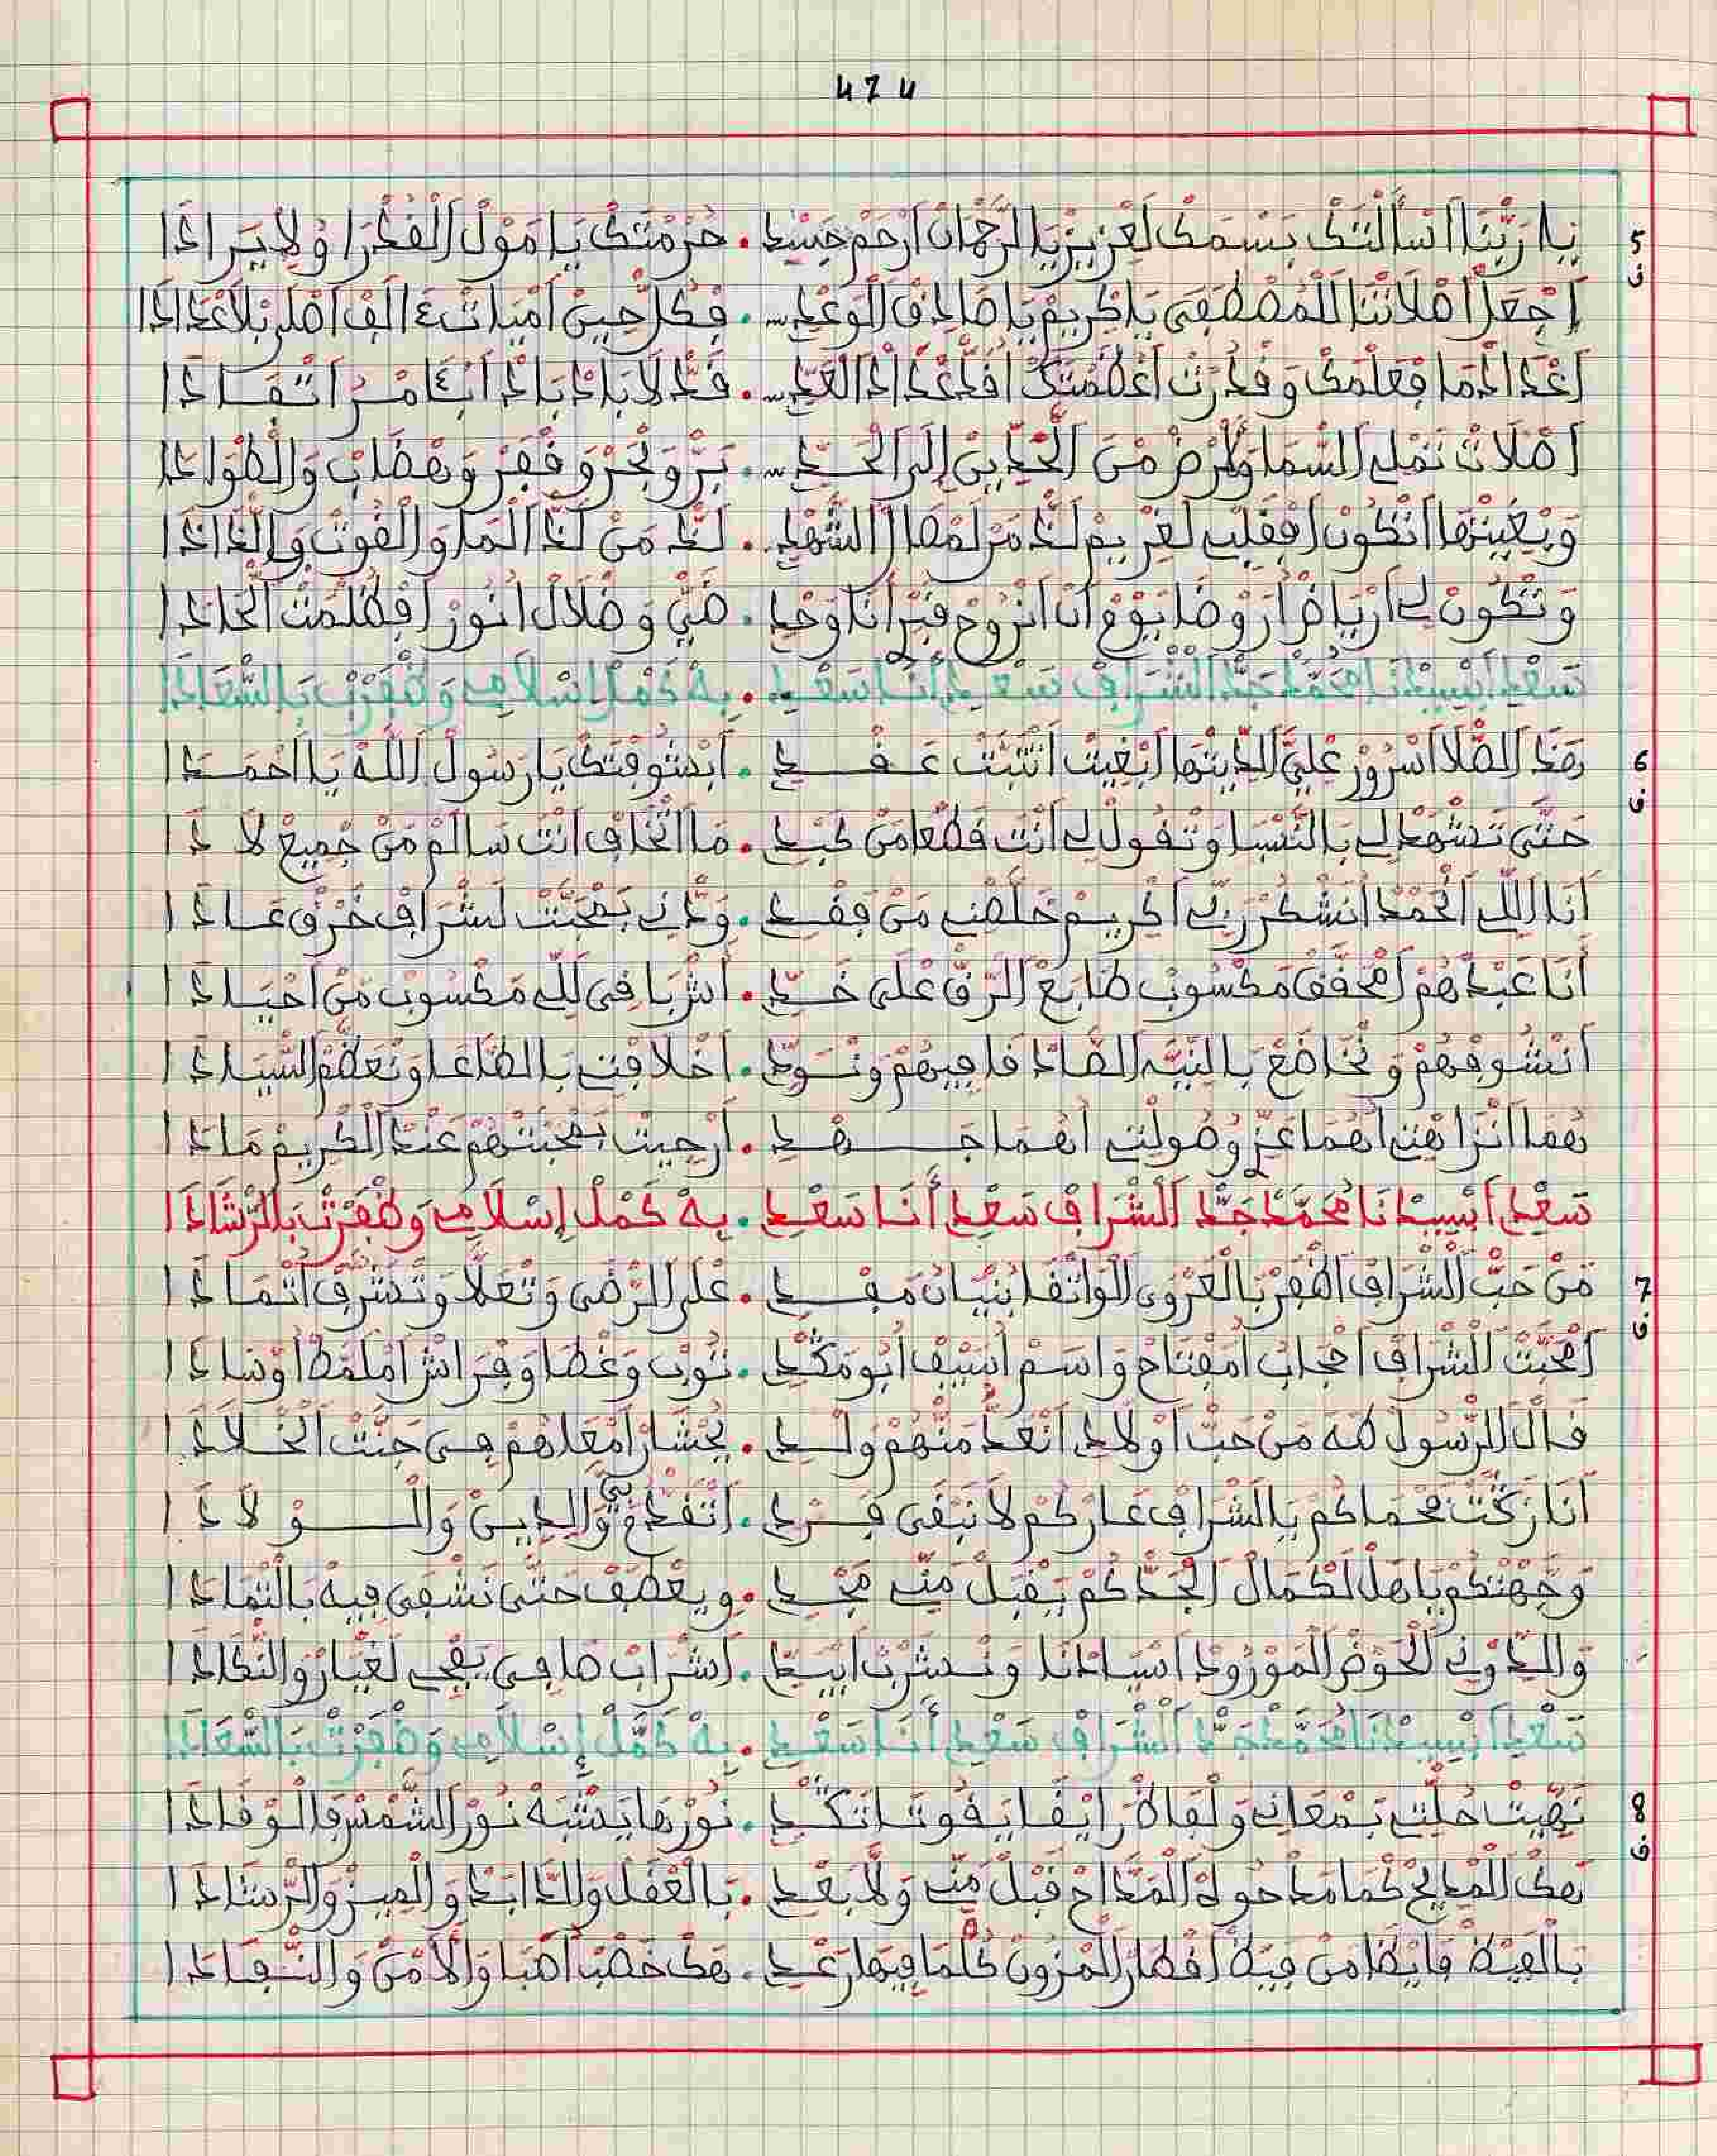 474
5 يا ربنا اسألتك بسمك لعزيز يا الرحمان ارحم جسدي . حرمتك يا مول القدرا ولا يرادا
ف
اجعل اصلاتنا للمصطفى يا كريم يا صادق الوعدي . فكل حين اميات ءالف اصل بلا عدادا
اعداد ما فعلمك وقدرت اعظمتك اقد اعداد العدي . قد لا باد باد ابدا من اتقادا
اصلات تملي السما ولرض من الحد بين إلى الحدي . بر وبحر وقفر وهضاب والطوادا
وبغيتها اتكون افقلبي لغريم لذ من لمصال الشهدي . لذ من لذ الما والقوت واللذاذا
وتكون لي ارياض اروضا يوم ان انروح قبر أنا وحدي . ضي وضلال انور افظلمت الحادا
سعدي ابسيدنا محمد جد الشراف سعدي أنا سعدي . به كمل إسلامي وظفرت بالسعادا
6 هذ الصلا اسرور علي الديتها ابغيت انثبت عقدي . ابشوقتك يا رسول الله يا احمدا
ف
حتى تشهد لي بالنسبا وتقول لي أنت قطعا من كبدي . ما اتخاف انت سالم من جميع لادا
أنا اللي الحمد انشكر ربي اكريم خلصني من فقدي . ودني بمحبت لشراف خرق عادا
أنا عبدهم امحقق مكسوب طابع الرق على خدي . اشربا في اللي مكسوب من احيادا
انشوفهم ونخاضع بالنيه الصادقا فيهم ونودي . اخلاقي بالطاعا ونعظم السيادا
هما انزاهتي اهما عز وصولتي اهما جهدي . ارجيت بمحبتهم عند الكريم مادا
سعدي ابسيدنا محمد جد الشراف سعدي أنا سعدي . به كمل إسلامي وظفرت بالرشادا
7 من حب الشراف اظفر بالعروى الواثقا بنيان مفدي . على الرضى وتعلا وتشرف اتمادا
ف
امحبت الشراف احجاب امفتاح واسم اسيف ابو مكدي . ثوب وغطا وفراش املمط اوسادا
قال الرسول طه من حب اولادي انعد منهم ولدي . يحشر امعاهم في جنت الخلادا
أنا زكت محماكم يا الشراف عاركم لا نبقى فردي . اتقدع بي والدين والولادا
وجهتكم ياهل لكمال الجدكم يقبل مني مجدي . ويعطف حتى نشفى فيه بالثمادا
والدوني الحوض المورود اسيادنا ونشرب ابيدي . اشراب صافي يفجي لغيار والنكادا
سعدي ابسيدنا محمد جد الشراف سعدي أنا سعدي . به كمل إسلامي وظفرت بالسعادا
8 نهيت حلتي بمعاني ولقاة رايقا يقوتا تكدي . نورها يشبه نور الشمس فالوقادا
ف
هك المديح كما مدحوك المداح قبل مني ولا بعدي . بالعقل والدابد والميز والرشادا
من فيه اقطار المزون كلما فيها رعدي . هك خصب اهبا والامن والنفادا